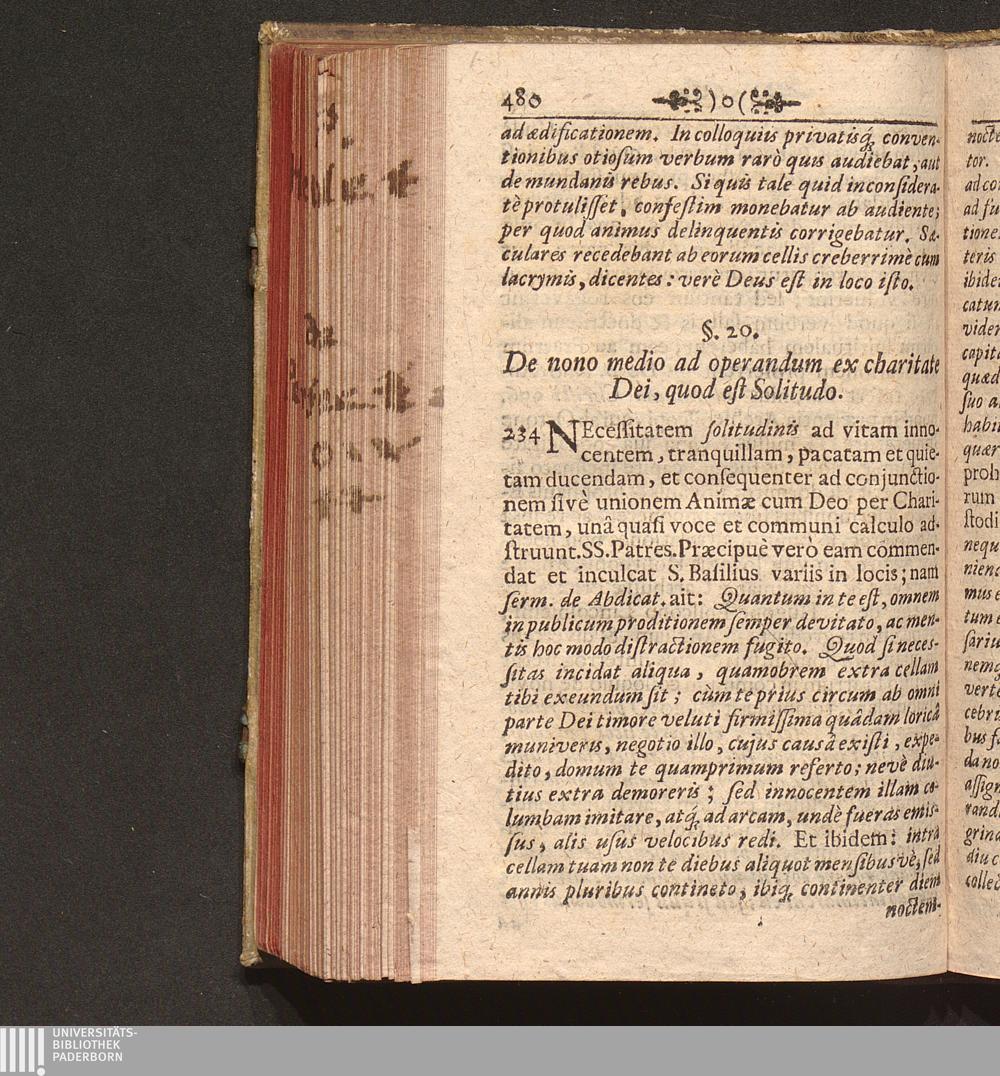 480 )o(
ad ædificationem. In colloquiis privatisq́; conven-
tionibus otioſum verbum rarò quis audiebat, aut
de mundanis rebus. Si quis tale quid inconſidera-
tè protuliſſet, confeſtim monebatur ab audiente;
per quod animus delinquentis corrigebatur. Sæ-
culares recedebant ab eorum cellis creberrimè cum
lacrymis, dicentes: verè Deus eſt in loco iſto.
§. 20.
De nono medio ad operandum ex charitate
Dei, quod eſt Solitudo.
234 NEceſſitatem ſolitudinis ad vitam inno-
centem, tranquillam, pacatam et quie-
tam ducendam, et conſequenter ad conjunctio-
nem ſivè unionem Animæ cum Deo per Chari-
tatem, unâ quaſi voce et communi calculo ad-
ſtruunt. SS. Patres. Præcipuè verò eam commen-
dat et inculcat S. Baſilius variis in locis; nam
ſerm. de Abdicat. ait: Quantum in te eſt, omnem
in publicum proditionem ſemper devitato, ac men-
tis hoc modo diſtractionem fugito. Quod ſi neceſ-
ſitas incidat aliqua, quamobrem extra cellam
tibi exeundum ſit; cùm te prius circum ab omni
parte Dei timore veluti firmiſſima quâdam loricâ
muniveris, negotio illo, cujus causâ exiſti, expe-
dito, domum te quamprimum referto; nevè diu-
tius extra demoreris; ſed innocentem illam co-
lumbam imitare, atq́; ad arcam, undè fueras emis-
ſus, alis uſus velocibus redi. Et ibidem: intrà
cellam tuam non te diebus aliquot menſibus vè, ſed
annis pluribus contineto, ibiq; continenter diem
noctem-
nocte
tor.
ad co
ad ſu
tione
teris
ibide
catu
vide
capit
quæd
ſuo a
habi
quær
proh
rum
ſtodi
nequ
nien
mus e
tum
ſariu
nemq
verte
cebri
bus f
da no
aſſig
rand
grin
diu c
collec
UNIVERSITÄTS-
BIBLIOTHEK
PADERBORN